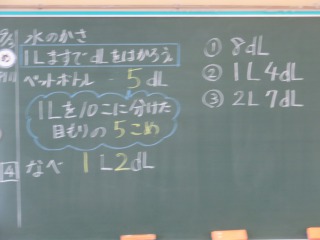 水のかさ
め 1LますでdLをはかろう
ペットボトル … 5dL
1Lを10こに分けた
目もりの5こめ
4 なべ 1L2dL
① 8dL
② 1L4dL
③ 2L7dL